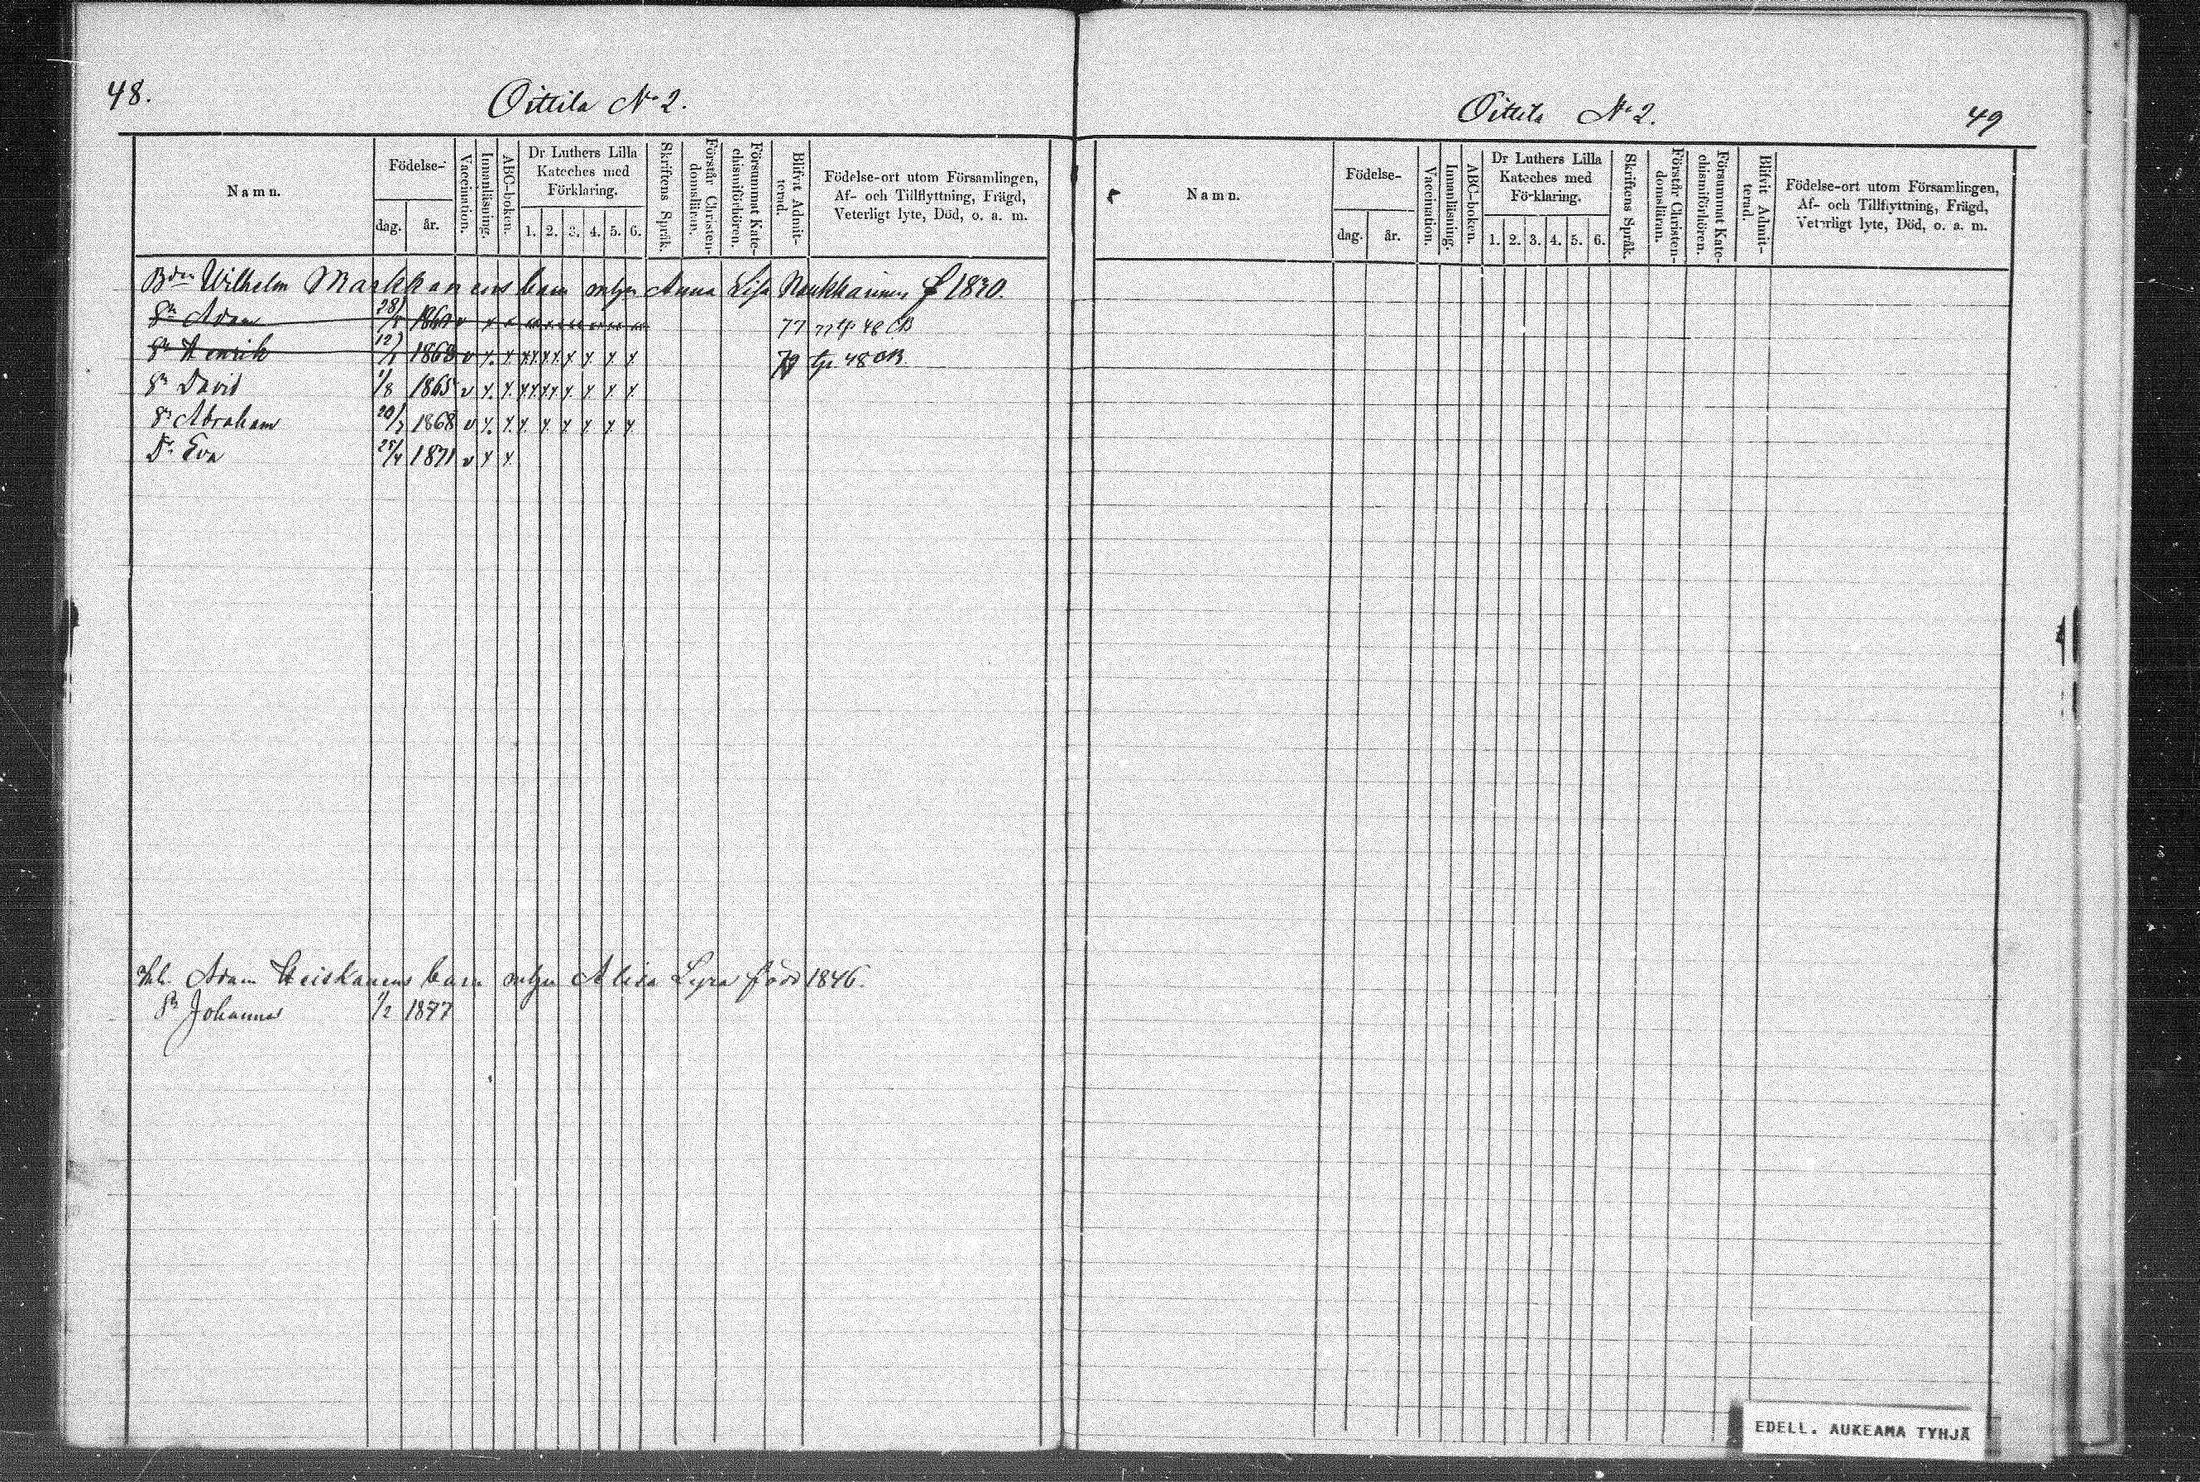 48.
Oittila No 2.
Namn.
Födelse-
dag.
år.
Vaccination.
Innanläsning.
ABC-boken.
Dr Luthers Lilla
Kateches med
Förklaring.
1. 2. 3. 4. 5. 6.
Skriftens Språk.
Förstår Christen-
domsläran.
Försummat Kate-
chismiförhören.
Blifvit Admit-
terad.
Födelse-ort utom Församlingen,
Af- och Tillflyttning, Frägd,
Veterligt lyte, Död, o. a. m.
Wilhelm Markkanens barn Anna Lisa f 1830.
Sn Adam 28/ 77 48 CB
Sn Henrik 12/ 1863 v 48 CB
Sn David 1/8 1865 v
Sn Abraham 20/ 1868 v
Dr Eva 25/4 1871 v
Adam Heiskanens barn Alisa Lyra född 1846.
Sn Johannes 1/2 1877
Oittila No 2.
49
Namn.
Födelse-
dag.
år.
Vaccination.
Innanläsning.
ABC-boken.
Dr Luthers Lilla
Kateches med
Förklaring.
1. 2. 3. 4. 5. 6.
Skriftens Språk.
Förstår Christen-
domsläran.
Försummat Kate-
chismiförhören.
Blifvit Admit-
terad.
Födelse-ort utom Församlingen,
Af- och Tillflyttning, Frägd,
Veterligt lyte, Död, o. a. m.
EDELL. AUKEAMA TYHJÄ